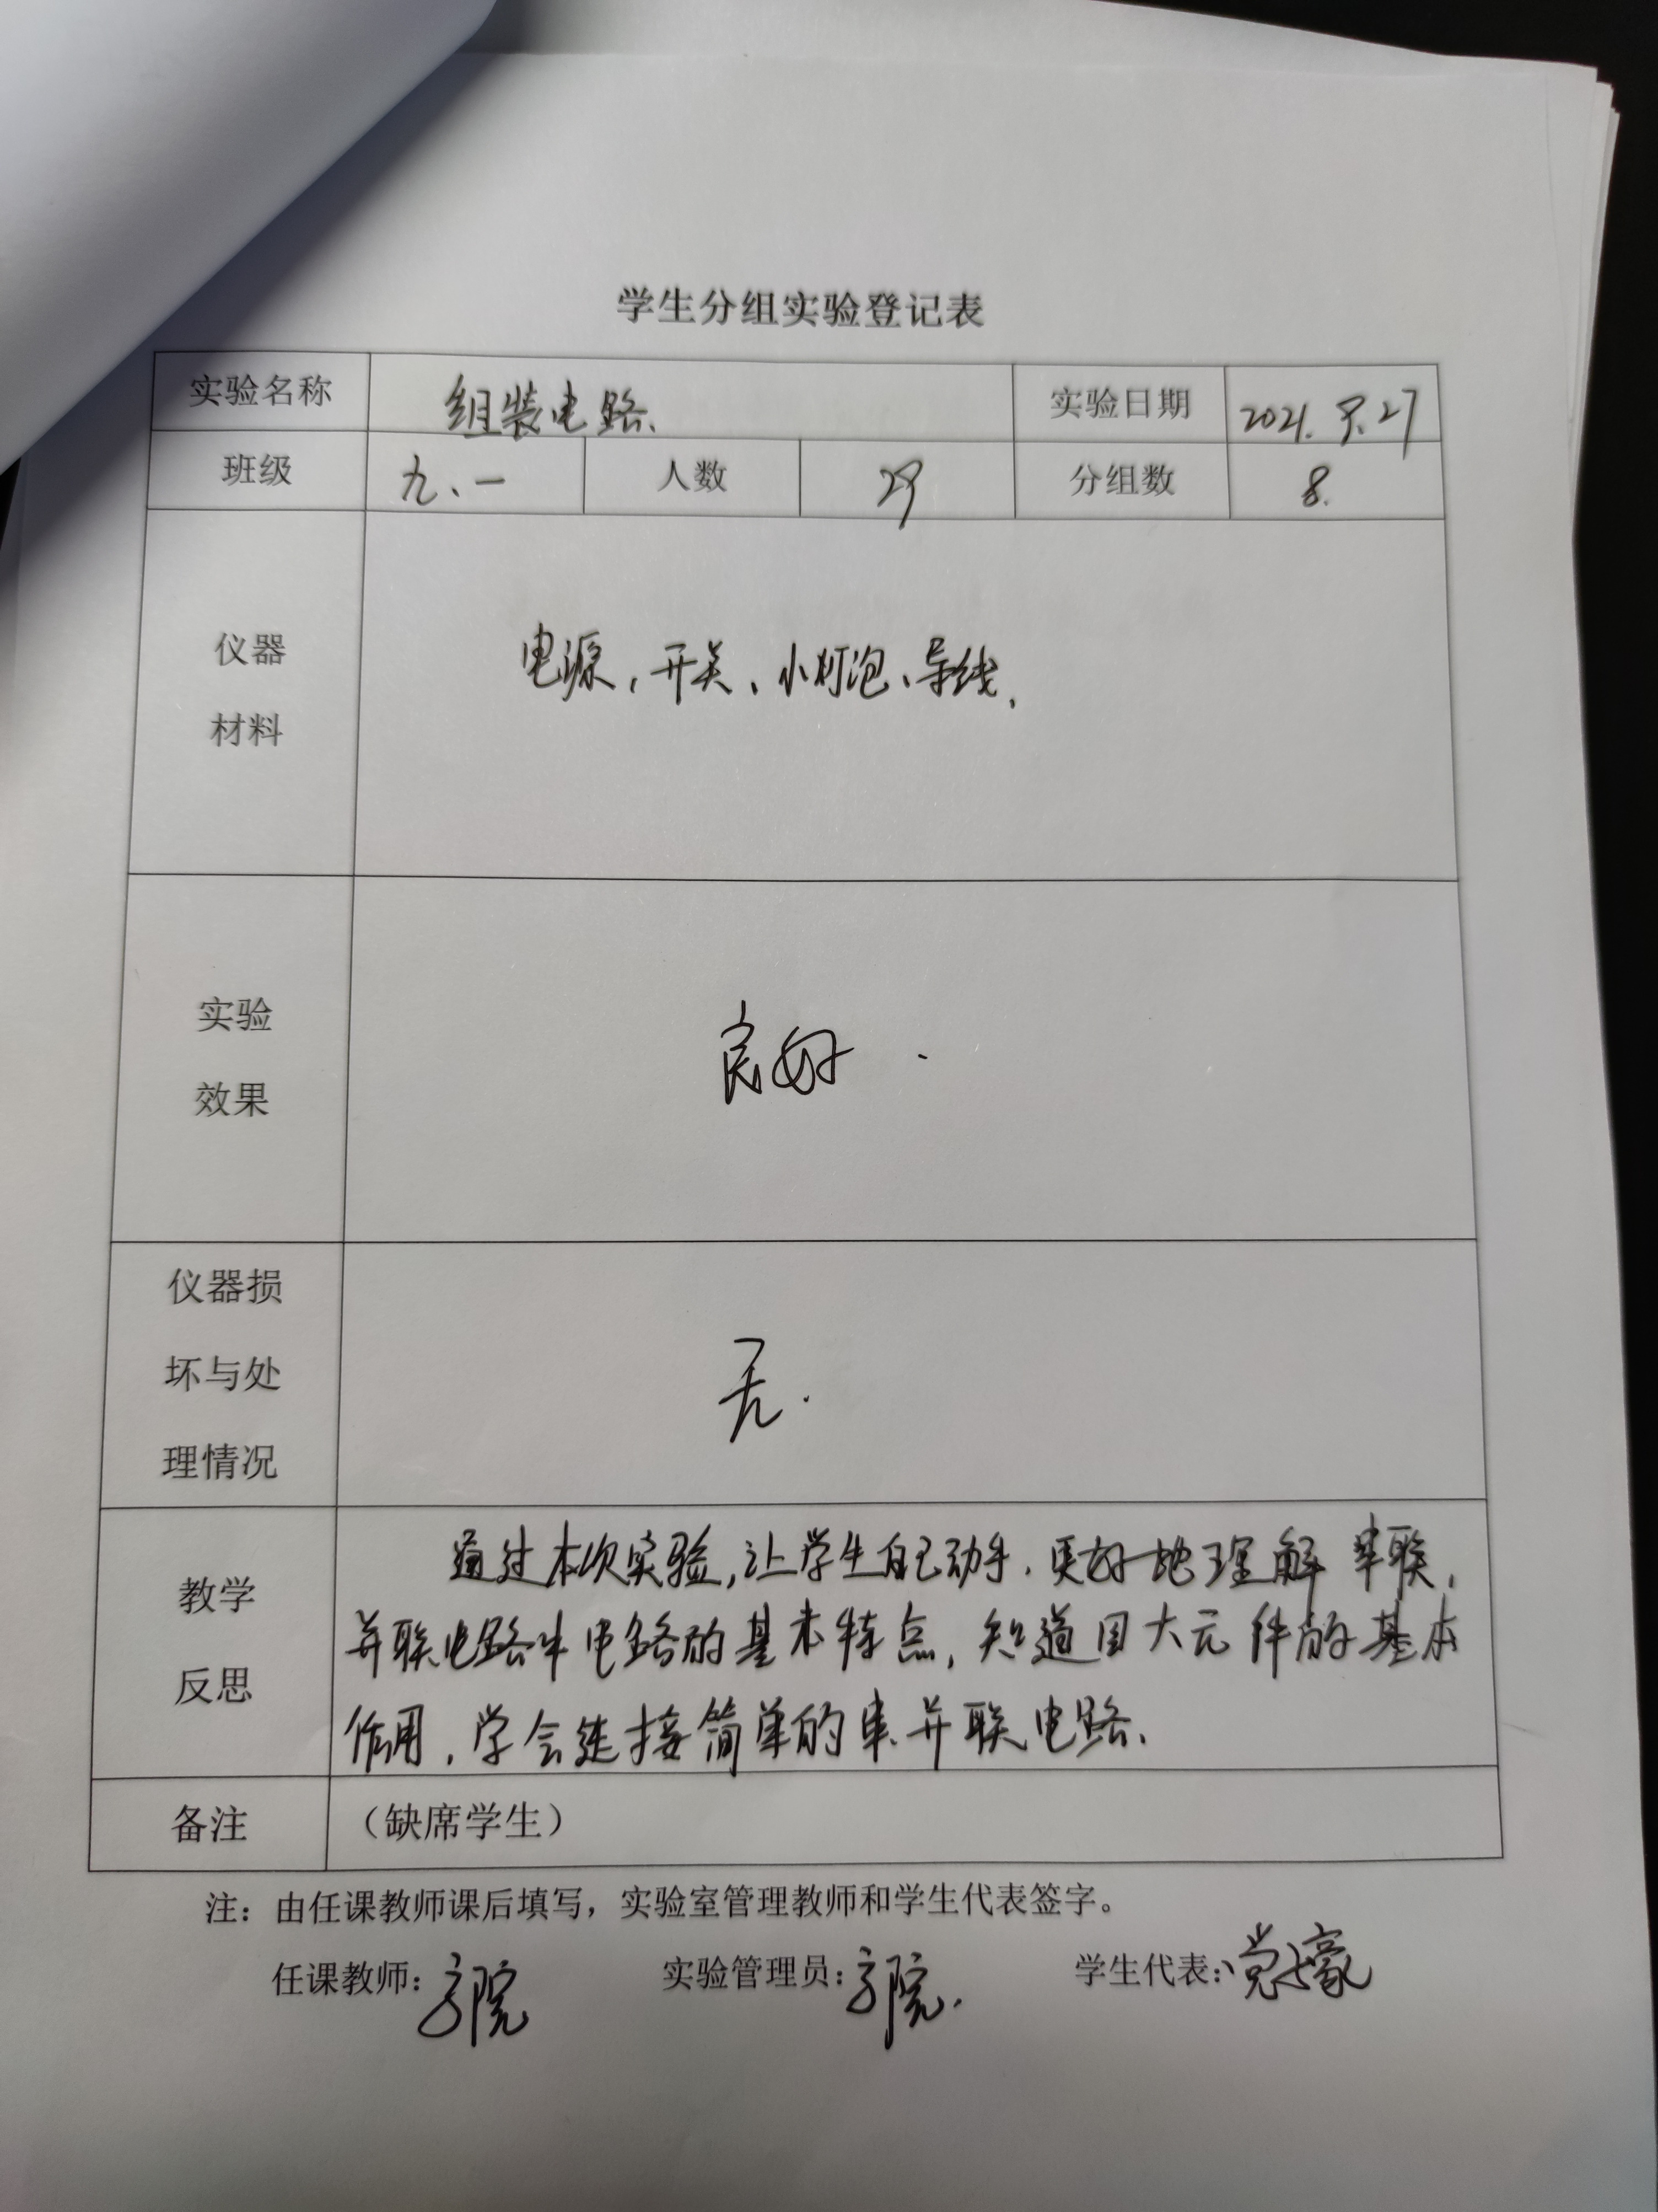 学生分组实验登记表
实验名称 组装电路. 实验日期 2021.9.27
班级 九、一 人数 29 分组数 8.
仪器
材料
电源、开关、小灯泡、导线.
实验
效果
良好.
仪器损
坏与处
理情况
无.
教学
反思
通过本次实验,让学生自己动手.更好地理解串联,
并联电路中电路的基本特点,知道四大元件的基本
作用,学会连接简单的串.并联电路.
备注 (缺席学生)
注:由任课教师课后填写,实验室管理教师和学生代表签字。
任课教师:
实验管理员:
学生代表: